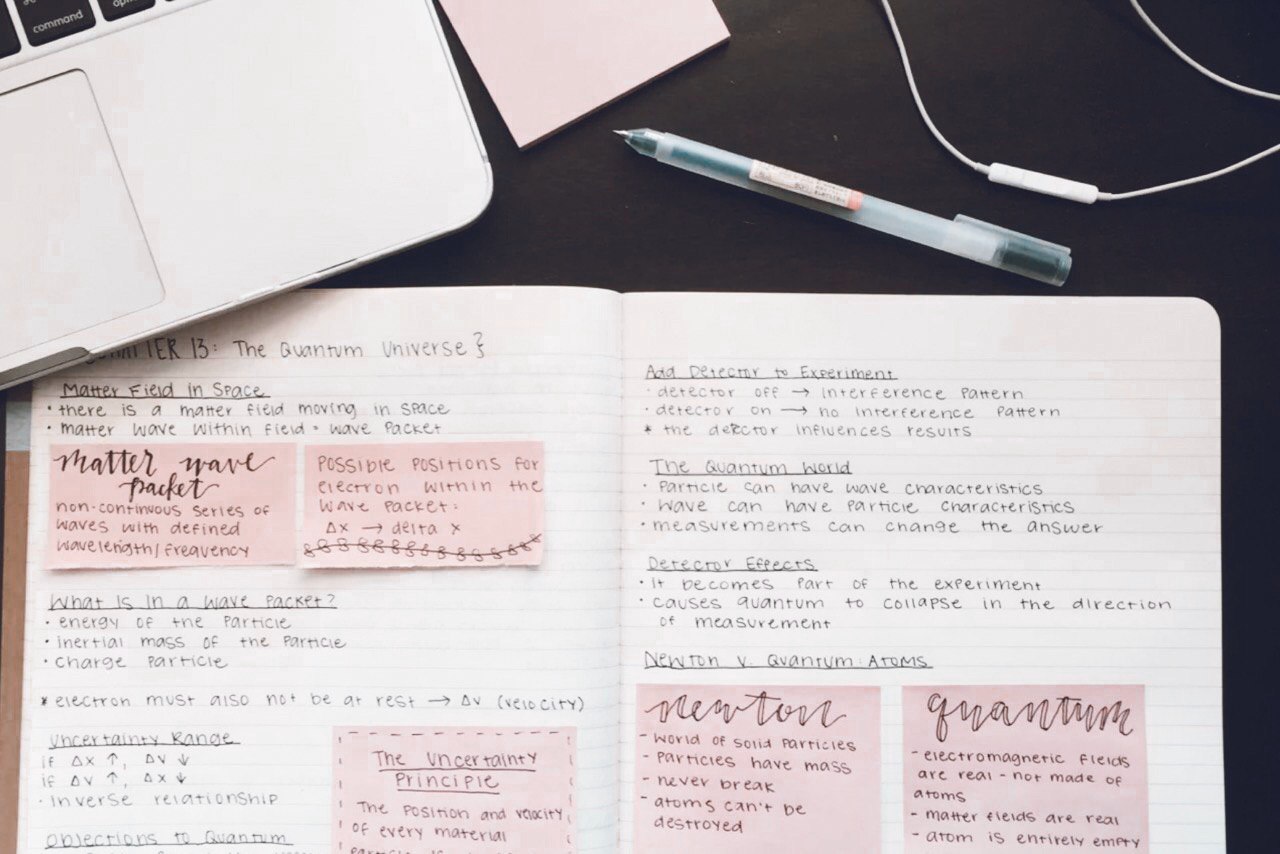 command
13: The Quantum Universe }
Matter Field in Space
• there is a matter field moving in space
• matter wave within field = wave packet
matter wave
packet
non-continuous series of
waves with defined
wavelength/frequency
possible positions for
electron within the
wave packet:
Δx → delta x
What is in a wave packet?
• energy of the particle
• inertial mass of the particle
• charge particle
* electron must also not be at rest → Δv (velocity)
Uncertainty Range
if Δx ↑, Δv ↓
if Δv ↑, Δx ↓
• inverse relationship
Objections to Quantum
The Uncertainty
Principle
The position and velocity
of every material
Add Detector to Experiment
• detector off → interference pattern
• detector on → no interference pattern
* the detector influences results
The Quantum World
• particle can have wave characteristics
• wave can have particle characteristics
• measurements can change the answer
Detector Effects
• it becomes part of the experiment
• causes quantum to collapse in the direction
of measurement
Newton v. Quantum: Atoms
newton
- world of solid particles
- particles have mass
- never break
- atoms can't be
destroyed
quantum
- electromagnetic fields
are real - not made of
atoms
- matter fields are real
- atom is entirely empty